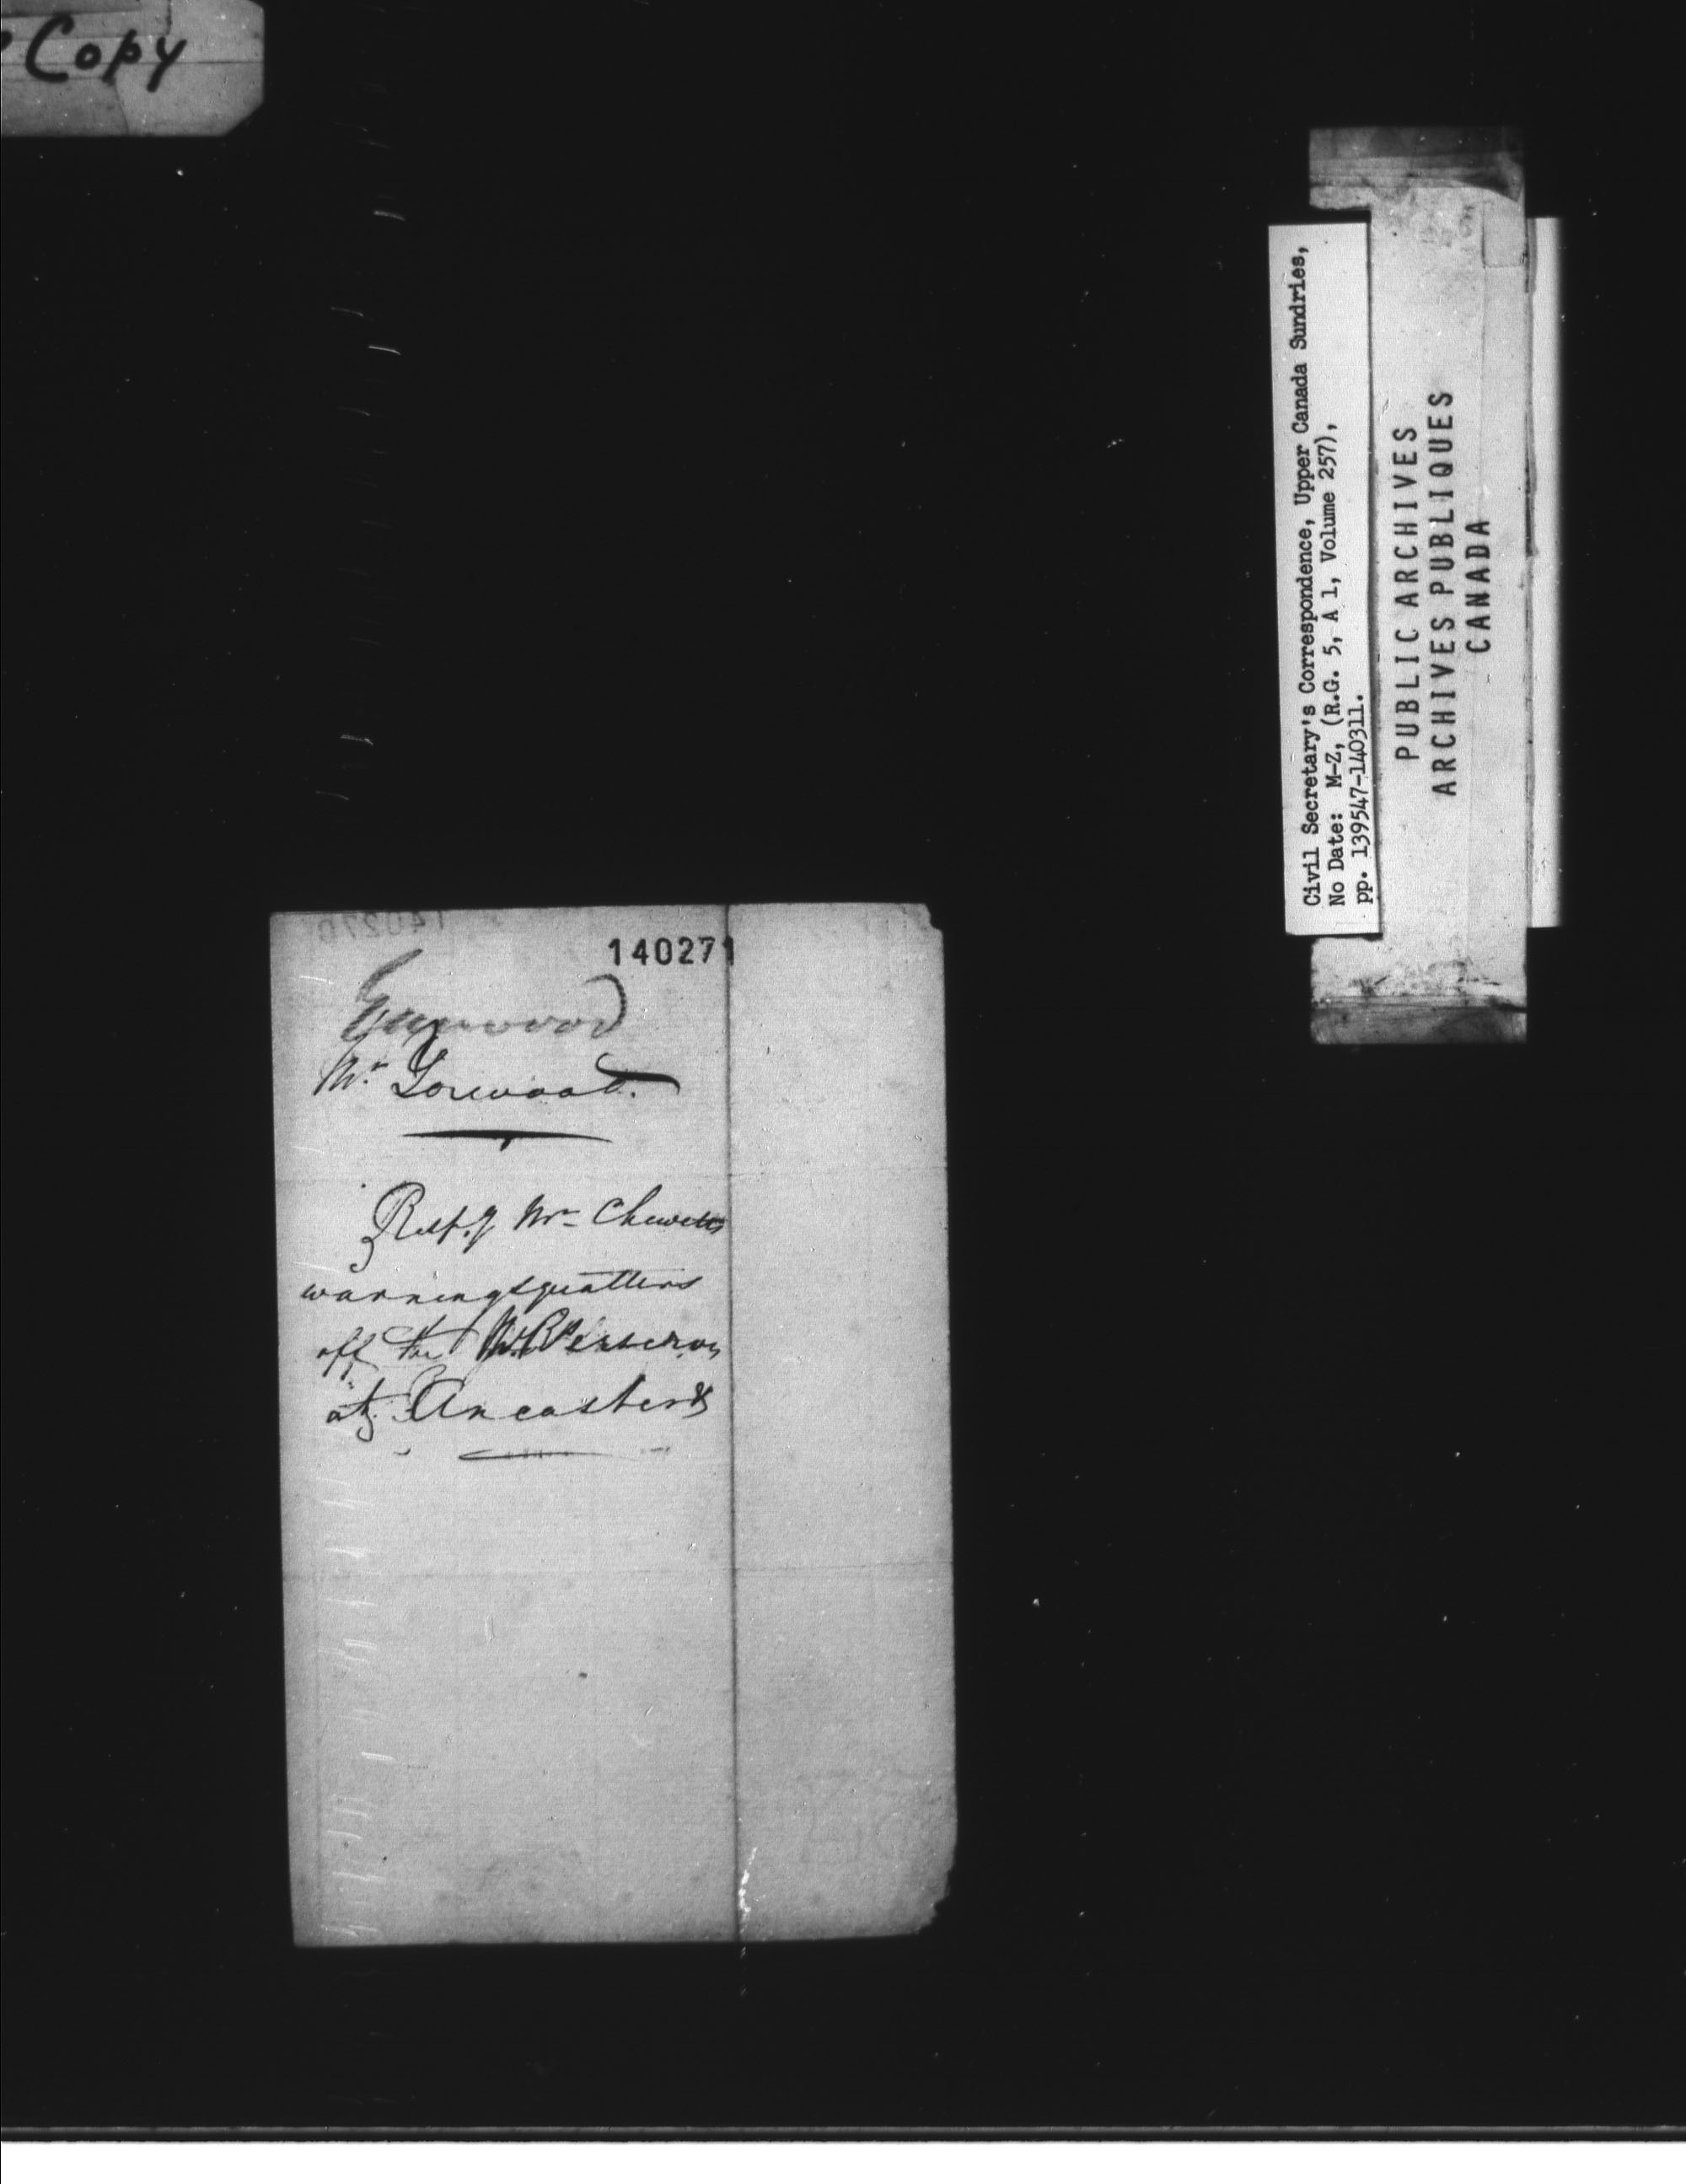 Copy
140270
140271
Mr.
Resp.g Mr Chewett
warning squatters
off the
at Ancaster &
Civil Secretary's Correspondence, Upper Canada Sundries,
No Date: M-Z, (R.G. 5, A 1, Volume 257),
pp. 139547-140311.
PUBLIC ARCHIVES
ARCHIVES PUBLIQUES
CANADA